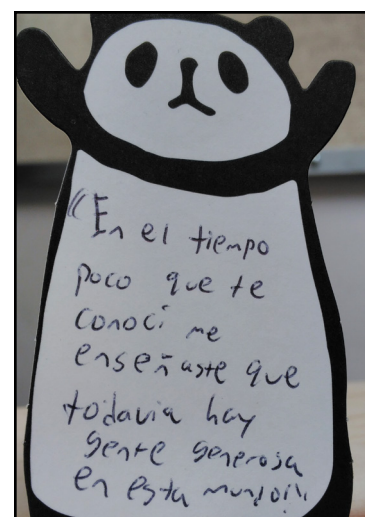 "En el tiempo
poco que te
conocí me
enseñaste que
todavia hay
gente generosa
en esta mundo!"